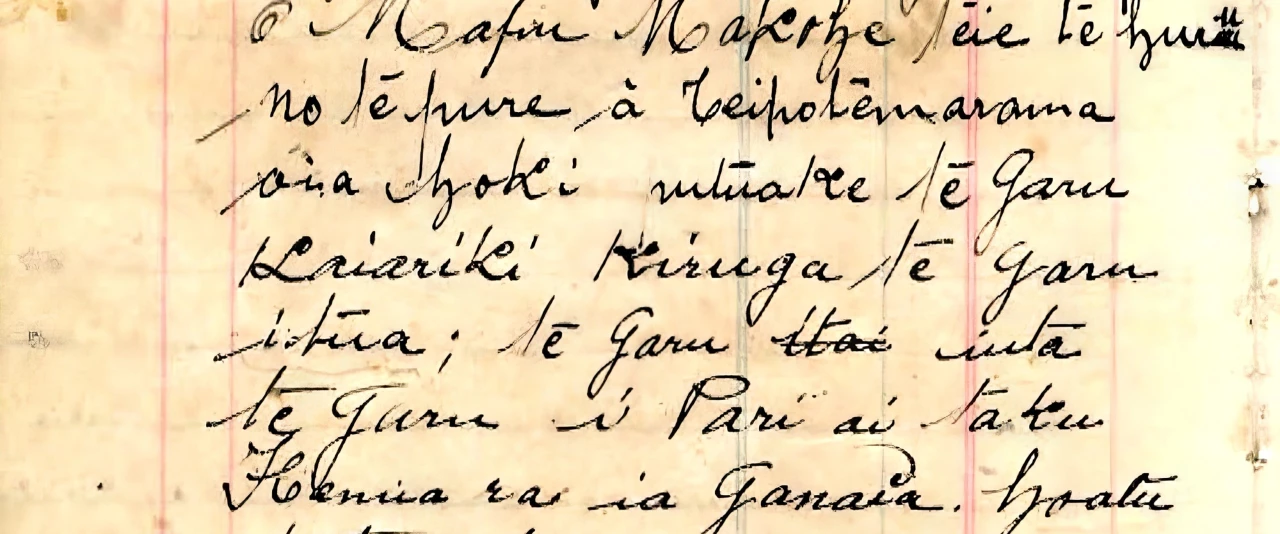 o Mafu Makohe teie te huru
no te pure a Teipotemarama
oia hoki utuake te Garu
Kaiariki Kiruga te Garu
itua; te Garu itai iuta
te Garu i Pari ai taku
Henua ra ia Ganaia. hoatu